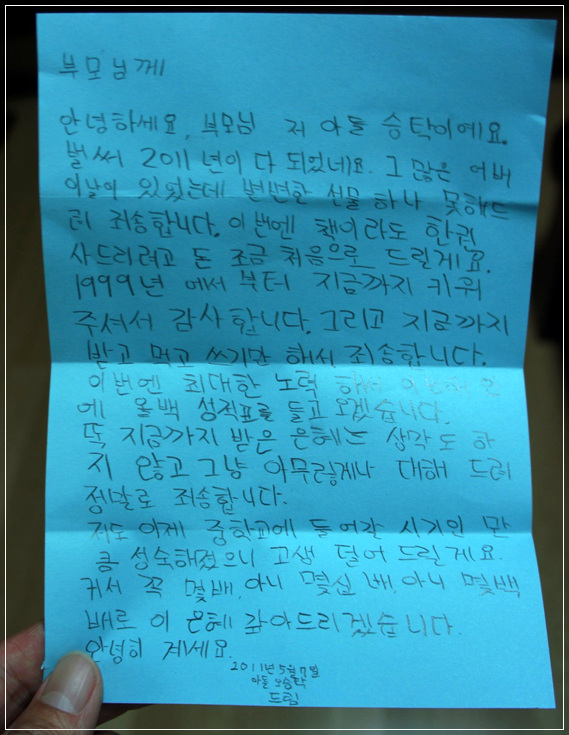 부모님께
안녕하세요, 부모님 저 아들 승탁이에요.
벌써 2011년이 다 되었네요. 그 많은 어버
이날이 있었는데 변변한 선물 하나 못해드
려 죄송합니다. 이번엔 책이라도 한권
사드리려고 돈 조금 처음으로 드릴게요.
1999년 에서 부터 지금까지 키워
주셔서 감사합니다. 그리고 지금까지
받고 먹고 쓰기만 해서 죄송합니다.
이번엔 최대한 노력 해서
에 올백 성적표를 들고 오겠습니다.
또 지금까지 받은 은혜는 생각도 하
지 않고 그냥 아무렇게나 대해 드려
정말로 죄송합니다.
저도 이제 중학교에 들어갈 시기인 만
큼 성숙해졌으니 고생 덜어 드릴게요.
커서 꼭 몇배, 아니 몇십 배, 아니 몇백
배로 이 은혜 갚아드리겠습니다.
안녕히 계세요.
2011년 5월 7일
아들 오승탁
드림